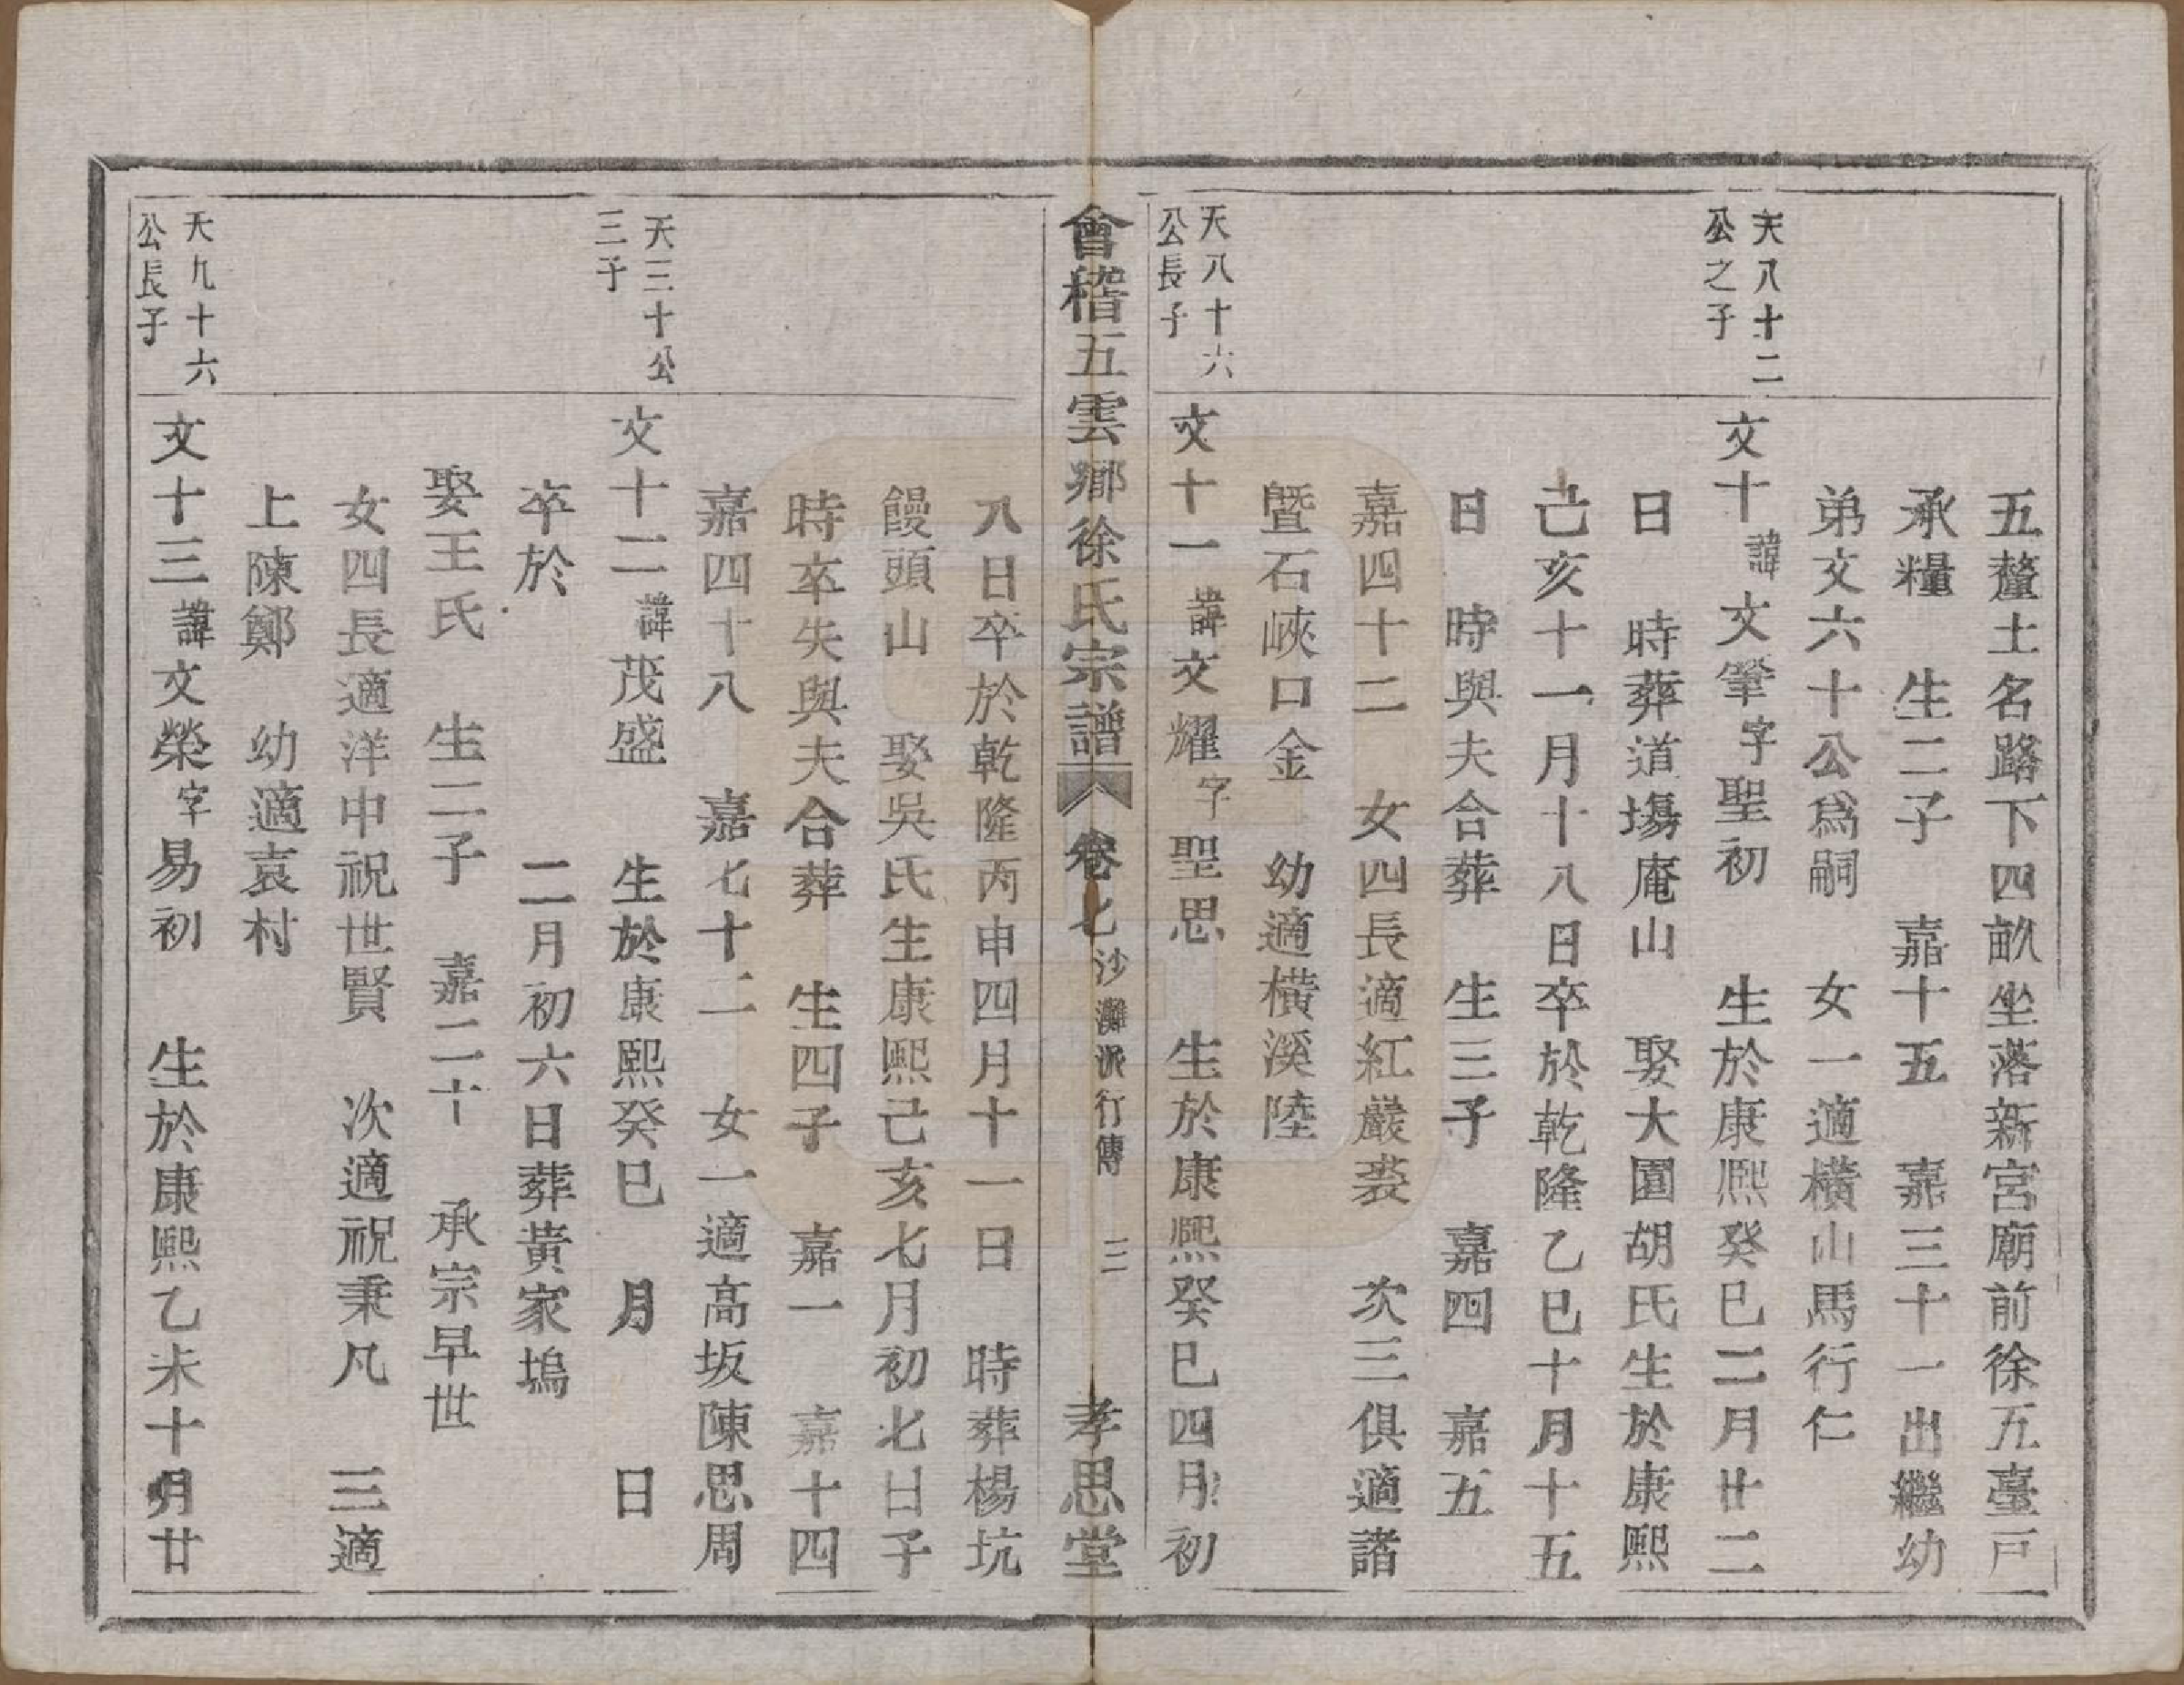 五釐土名路下四畝坐落新宮廟前徐五臺戸
承糧　生二子　嘉十五　嘉三十一出繼幼
弟文六十公爲嗣　女一適橫山馬行仁
天八十二
公之子
文十諱文肇字聖初　生於康熙癸巳二月廿二
日　時葬道塲庵山　娶大園胡氏生於康熙
己亥十一月十八日卒於乾隆乙巳十月十五
日　時與夫合葬　生三子　嘉四　嘉五
嘉四十二　女四長適紅巖裘　次三俱適諸
暨石峽口金　幼適橫溪陸
天八十六
公長子
文十一諱文耀字聖思　生於康熙癸巳四月初
會稽五雲鄉徐氏宗譜　卷七　沙灘派行傳　三　孝思堂
八日卒於乾隆丙申四月十一日　時葬楊坑
饅頭山　娶吳氏生康熙己亥七月初七日子
時卒失與夫合葬　生四子　嘉一　嘉十四
嘉四十八　嘉七十二　女一適高坂陳思周
天三十公
三子
文十二諱茂盛　生於康熙癸巳　月　日
卒於　二月初六日葬黃家塢
娶王氏　生二子　嘉二十　承宗早世
女四長適洋中祝世賢　次適祝秉凡　三適
上陳鄭　幼適袁村
天九十六
公長子
文十三諱文榮字易初　生於康熙乙未十月廿